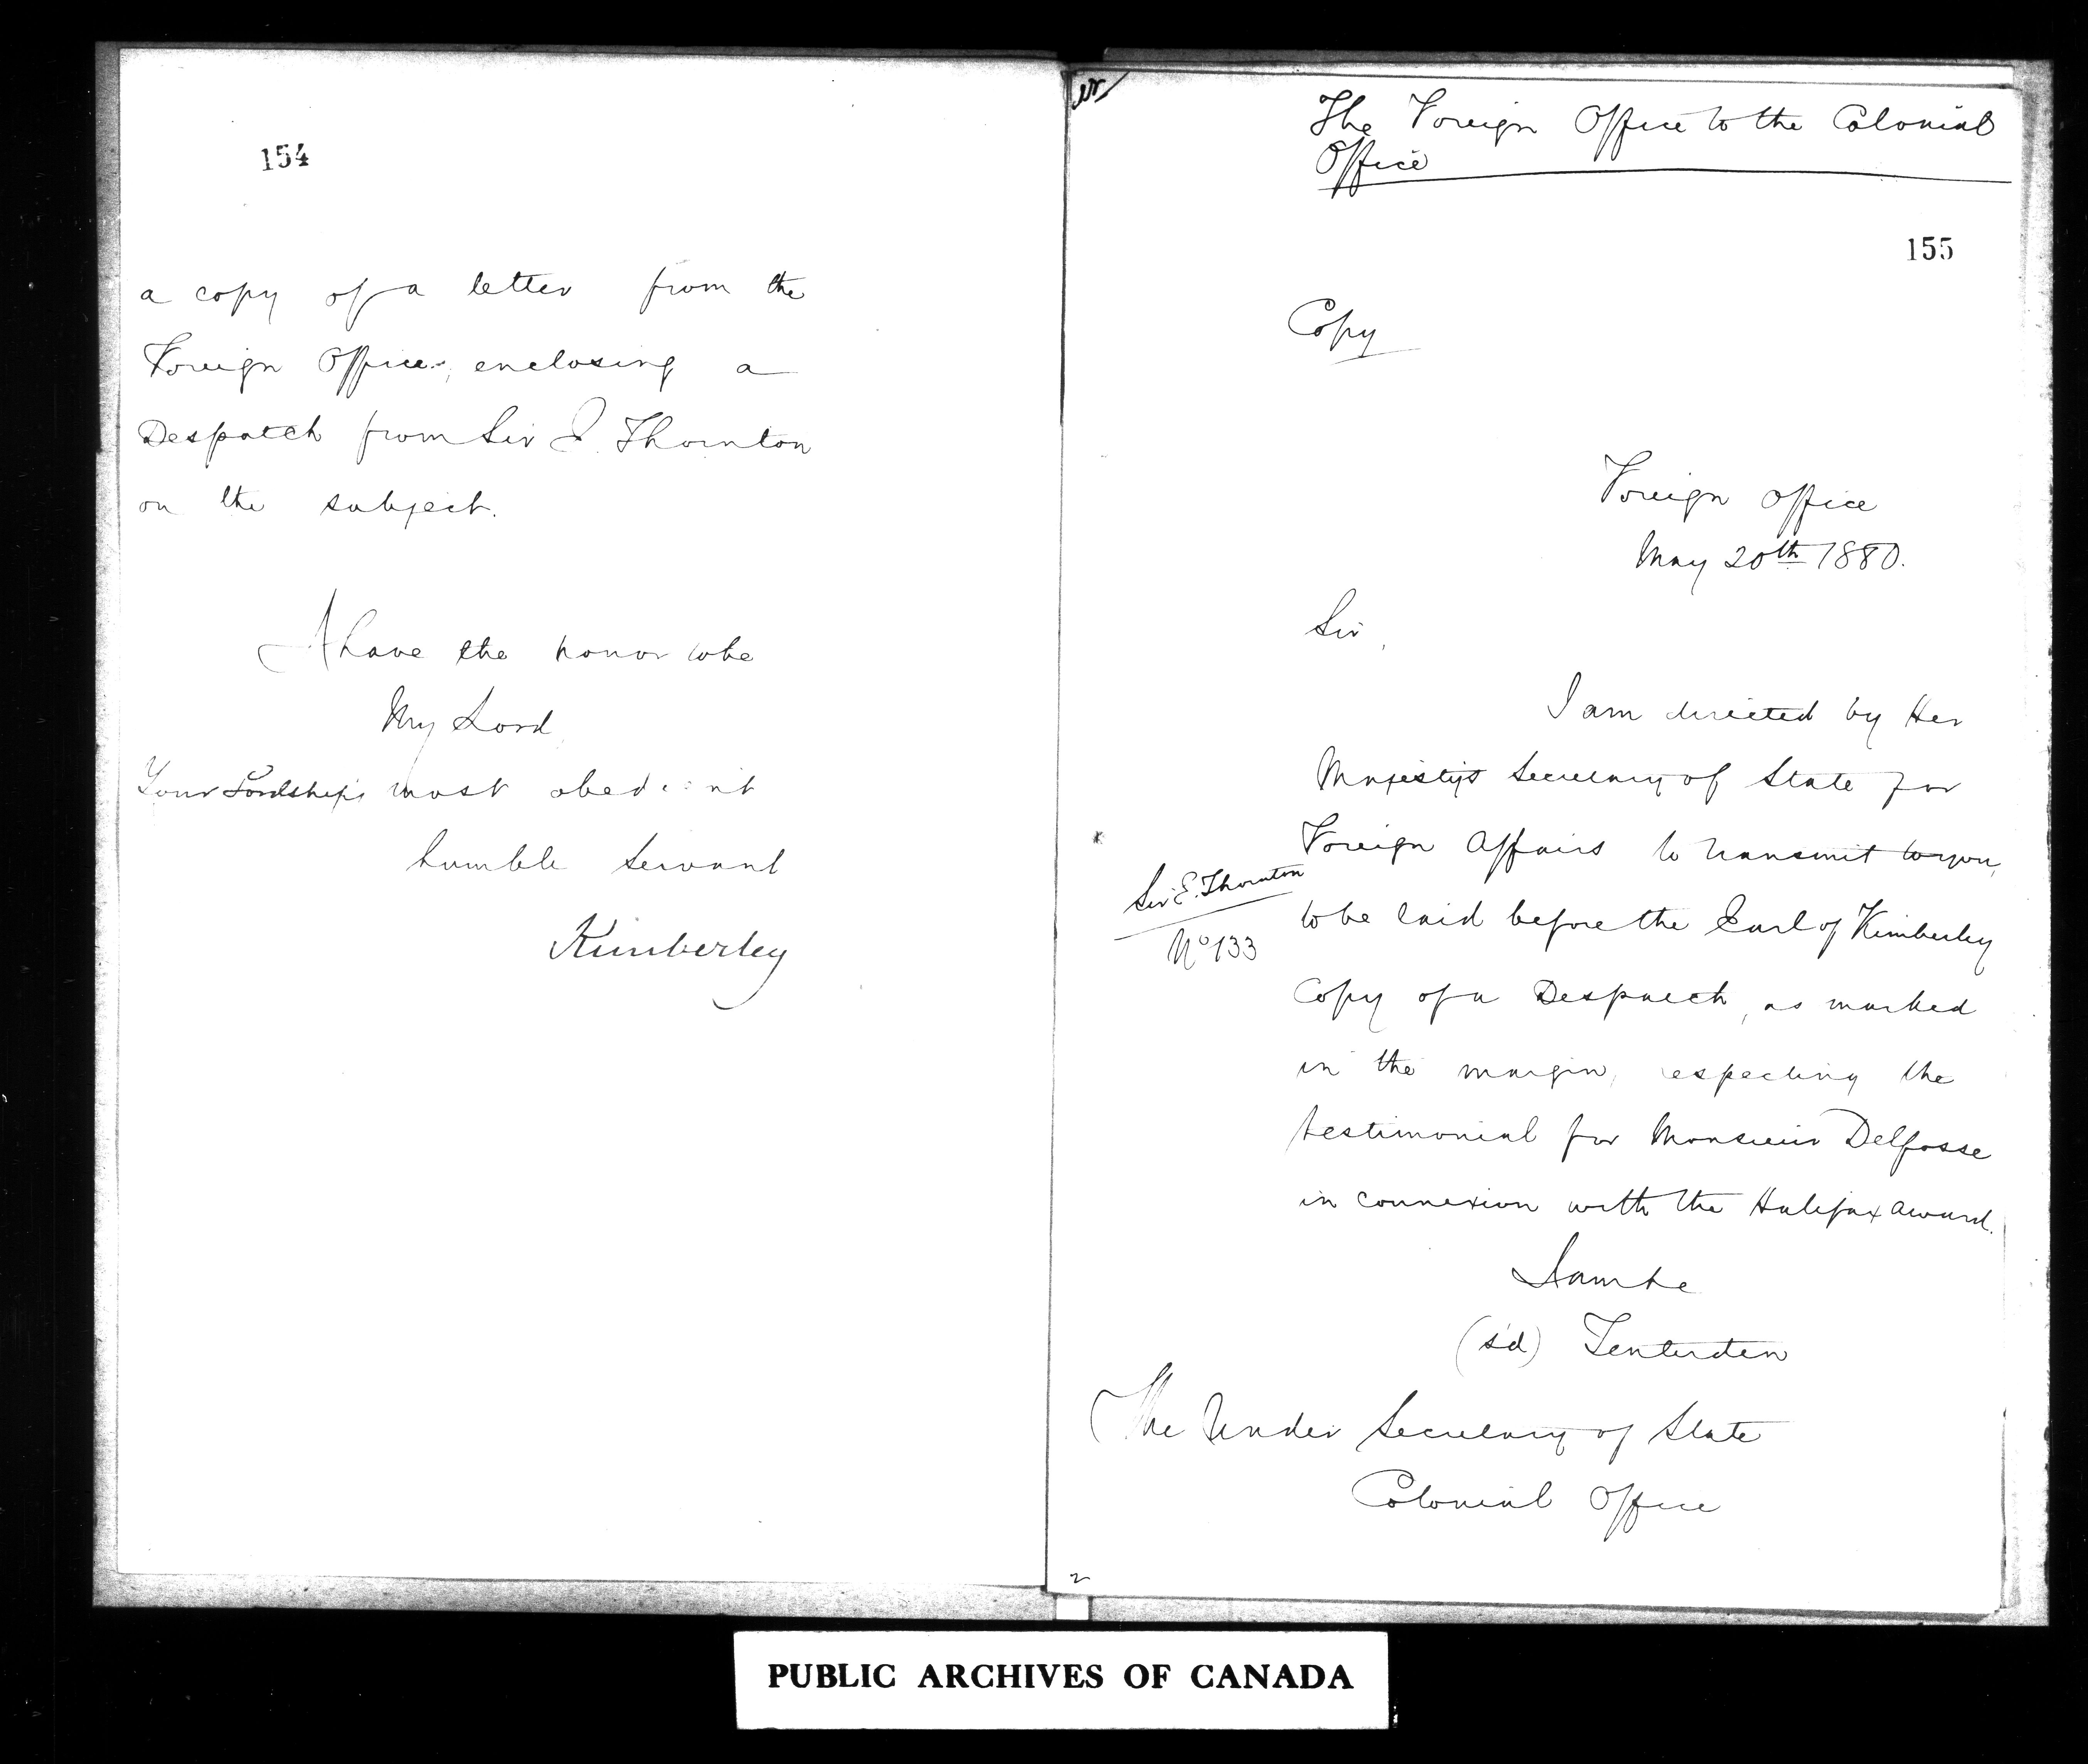 154
a copy of a letter from the
Foreign Office, enclosing a
Despatch from Sir E. Thornton
on the subject.
I have the honor to be
My Lord
Your Lordship's most obedient
humble servant
Kimberley
The Foreign Office to the Colonial
Office
155
Copy
Foreign Office
May 20th 1880.
Sir,
I am directed by Her
Majesty's Secretary of State for
Foreign Affairs to transmit to you,
to be laid before the Earl of Kimberley
Copy of a Despatch, as marked
in the margin, respecting the
testimonial for Monsieur Delfosse
in connexion with the Halifax award.
Sir E. Thornton
No 133
I am &c
(s'd) Tenterden
The Under Secretary of State
Colonial Office
PUBLIC ARCHIVES OF CANADA